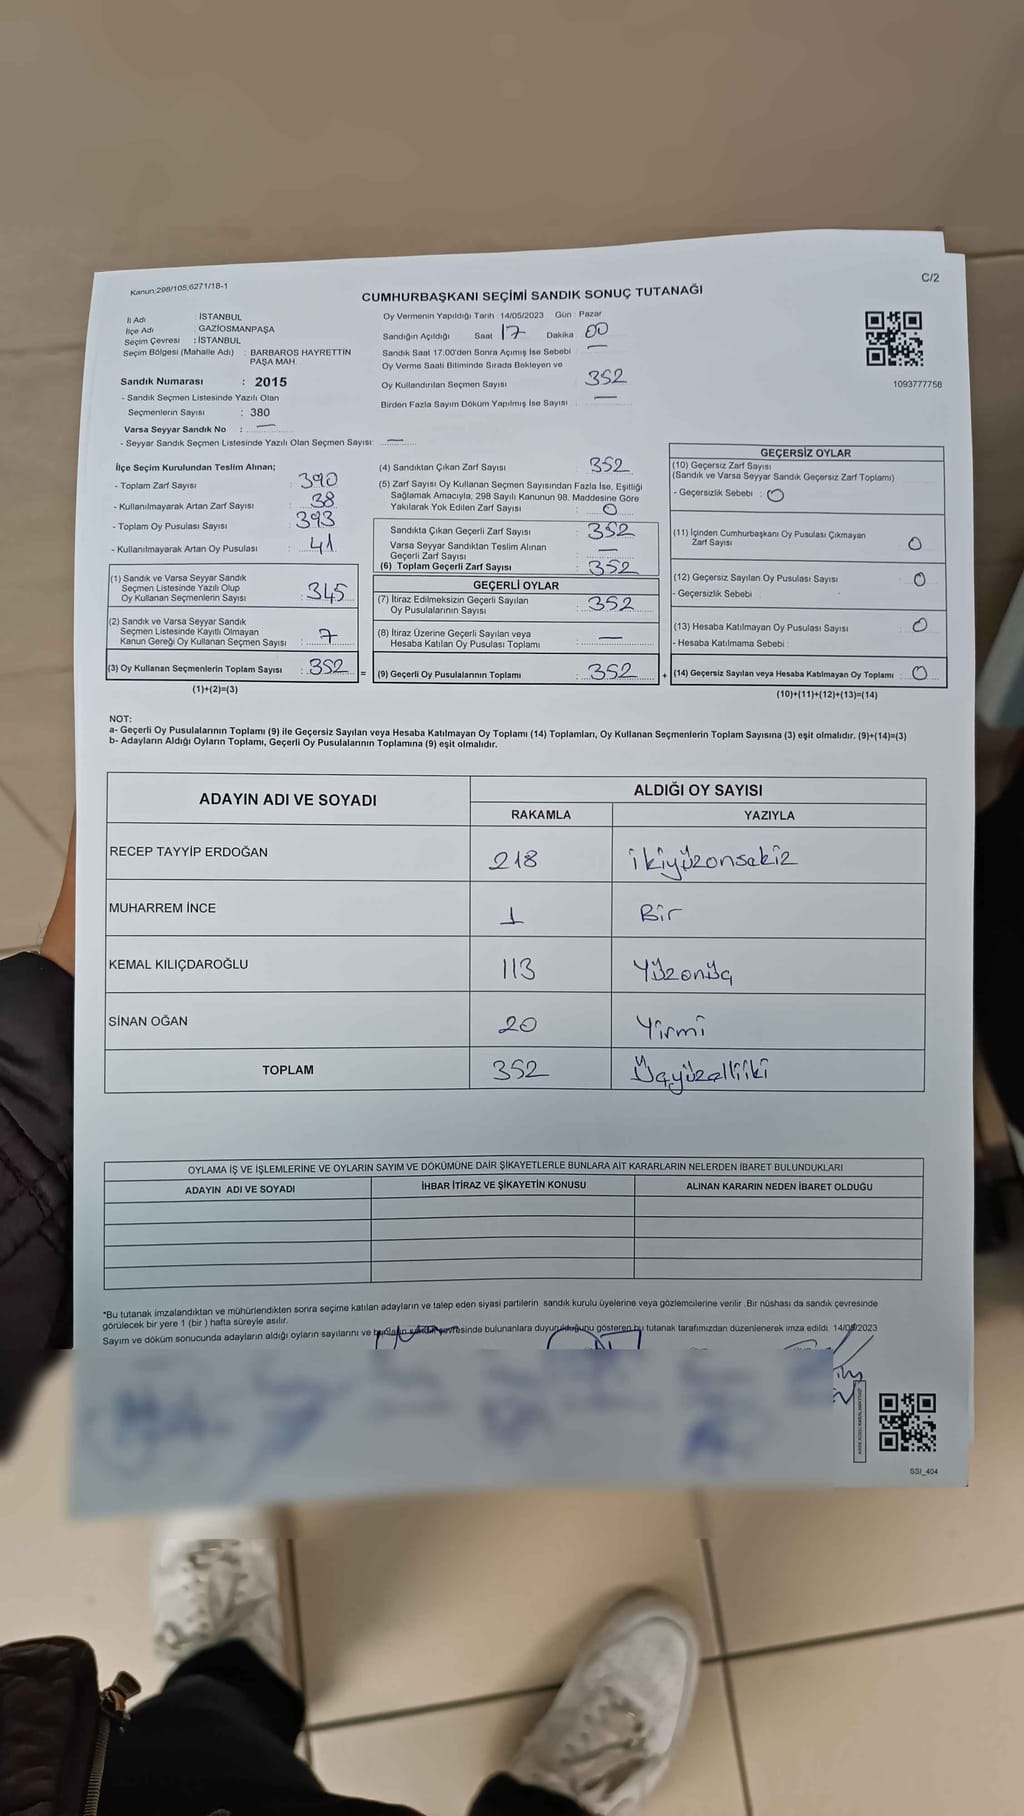 Kanun:298/105,6271/18-1
C/2
CUMHURBAŞKANI SEÇİMİ SANDIK SONUÇ TUTANAĞI
İl Adı : İSTANBUL
İlçe Adı : GAZİOSMANPAŞA
Seçim Çevresi : İSTANBUL
Seçim Bölgesi (Mahalle Adı) : BARBAROS HAYRETTİN
PAŞA MAH.
Sandık Numarası : 2015
- Sandık Seçmen Listesinde Yazılı Olan
Seçmenlerin Sayısı : 380
Varsa Seyyar Sandık No : —
- Seyyar Sandık Seçmen Listesinde Yazılı Olan Seçmen Sayısı: —
Oy Vermenin Yapıldığı Tarih : 14/05/2023 Gün : Pazar
Sandığın Açıldığı Saat 17 Dakika 00
Sandık Saat 17:00'den Sonra Açımış İse Sebebi —
Oy Verme Saati Bitiminde Sırada Bekleyen ve
Oy Kullandırılan Seçmen Sayısı : 352
Birden Fazla Sayım Döküm Yapılmış İse Sayısı : —
1093777758
İlçe Seçim Kurulundan Teslim Alınan;
- Toplam Zarf Sayısı : 390
- Kullanılmayarak Artan Zarf Sayısı : 38
- Toplam Oy Pusulası Sayısı : 393
- Kullanılmayarak Artan Oy Pusulası : 41
(1) Sandık ve Varsa Seyyar Sandık
Seçmen Listesinde Yazılı Olup
Oy Kullanan Seçmenlerin Sayısı : 345
(2) Sandık ve Varsa Seyyar Sandık
Seçmen Listesinde Kayıtlı Olmayan
Kanun Gereği Oy Kullanan Seçmen Sayısı : 7
(3) Oy Kullanan Seçmenlerin Toplam Sayısı : 352 =
(1)+(2)=(3)
(4) Sandıktan Çıkan Zarf Sayısı : 352
(5) Zarf Sayısı Oy Kullanan Seçmen Sayısından Fazla İse, Eşitliği
Sağlamak Amacıyla, 298 Sayılı Kanunun 98. Maddesine Göre
Yakılarak Yok Edilen Zarf Sayısı : 0
Sandıkta Çıkan Geçerli Zarf Sayısı : 352
Varsa Seyyar Sandıktan Teslim Alınan
Geçerli Zarf Sayısı : —
(6) Toplam Geçerli Zarf Sayısı : 352
GEÇERLİ OYLAR
(7) İtiraz Edilmeksizin Geçerli Sayılan
Oy Pusulalarının Sayısı : 352
(8) İtiraz Üzerine Geçerli Sayılan veya
Hesaba Katılan Oy Pusulası Toplamı : —
(9) Geçerli Oy Pusulalarının Toplamı : 352 +
GEÇERSİZ OYLAR
(10) Geçersiz Zarf Sayısı
(Sandık ve Varsa Seyyar Sandık Geçersiz Zarf Toplamı)
- Geçersizlik Sebebi : 0
(11) İçinden Cumhurbaşkanı Oy Pusulası Çıkmayan
Zarf Sayısı : 0
(12) Geçersiz Sayılan Oy Pusulası Sayısı : 0
- Geçersizlik Sebebi :
(13) Hesaba Katılmayan Oy Pusulası Sayısı : 0
- Hesaba Katılmama Sebebi :
(14) Geçersiz Sayılan veya Hesaba Katılmayan Oy Toplamı : 0
(10)+(11)+(12)+(13)=(14)
NOT:
a- Geçerli Oy Pusulalarının Toplamı (9) ile Geçersiz Sayılan veya Hesaba Katılmayan Oy Toplamı (14) Toplamları, Oy Kullanan Seçmenlerin Toplam Sayısına (3) eşit olmalıdır. (9)+(14)=(3)
b- Adayların Aldığı Oyların Toplamı, Geçerli Oy Pusulalarının Toplamına (9) eşit olmalıdır.
ADAYIN ADI VE SOYADI
ALDIĞI OY SAYISI
RAKAMLA YAZIYLA
RECEP TAYYİP ERDOĞAN 218 ikiyüzonsekiz
MUHARREM İNCE 1 Bir
KEMAL KILIÇDAROĞLU 113 Yüzonüç
SİNAN OĞAN 20 Yirmi
TOPLAM 352 Üçyüzelliiki
OYLAMA İŞ VE İŞLEMLERİNE VE OYLARIN SAYIM VE DÖKÜMÜNE DAİR ŞİKAYETLERLE BUNLARA AİT KARARLARIN NELERDEN İBARET BULUNDUKLARI
ADAYIN ADI VE SOYADI İHBAR İTİRAZ VE ŞİKAYETİN KONUSU ALINAN KARARIN NEDEN İBARET OLDUĞU
*Bu tutanak imzalandıktan ve mühürlendikten sonra seçime katılan adayların ve talep eden siyasi partilerin sandık kurulu üyelerine veya gözlemcilerine verilir .Bir nüshası da sandık çevresinde
görülecek bir yere 1 (bir ) hafta süreyle asılır.
Sayım ve döküm sonucunda adayların aldığı oyların sayılarını ve bunların sandık çevresinde bulunanlara duyurulduğunu gösteren bu tutanak tarafımızdan düzenlenerek imza edildi. 14/05/2023
SSI_404